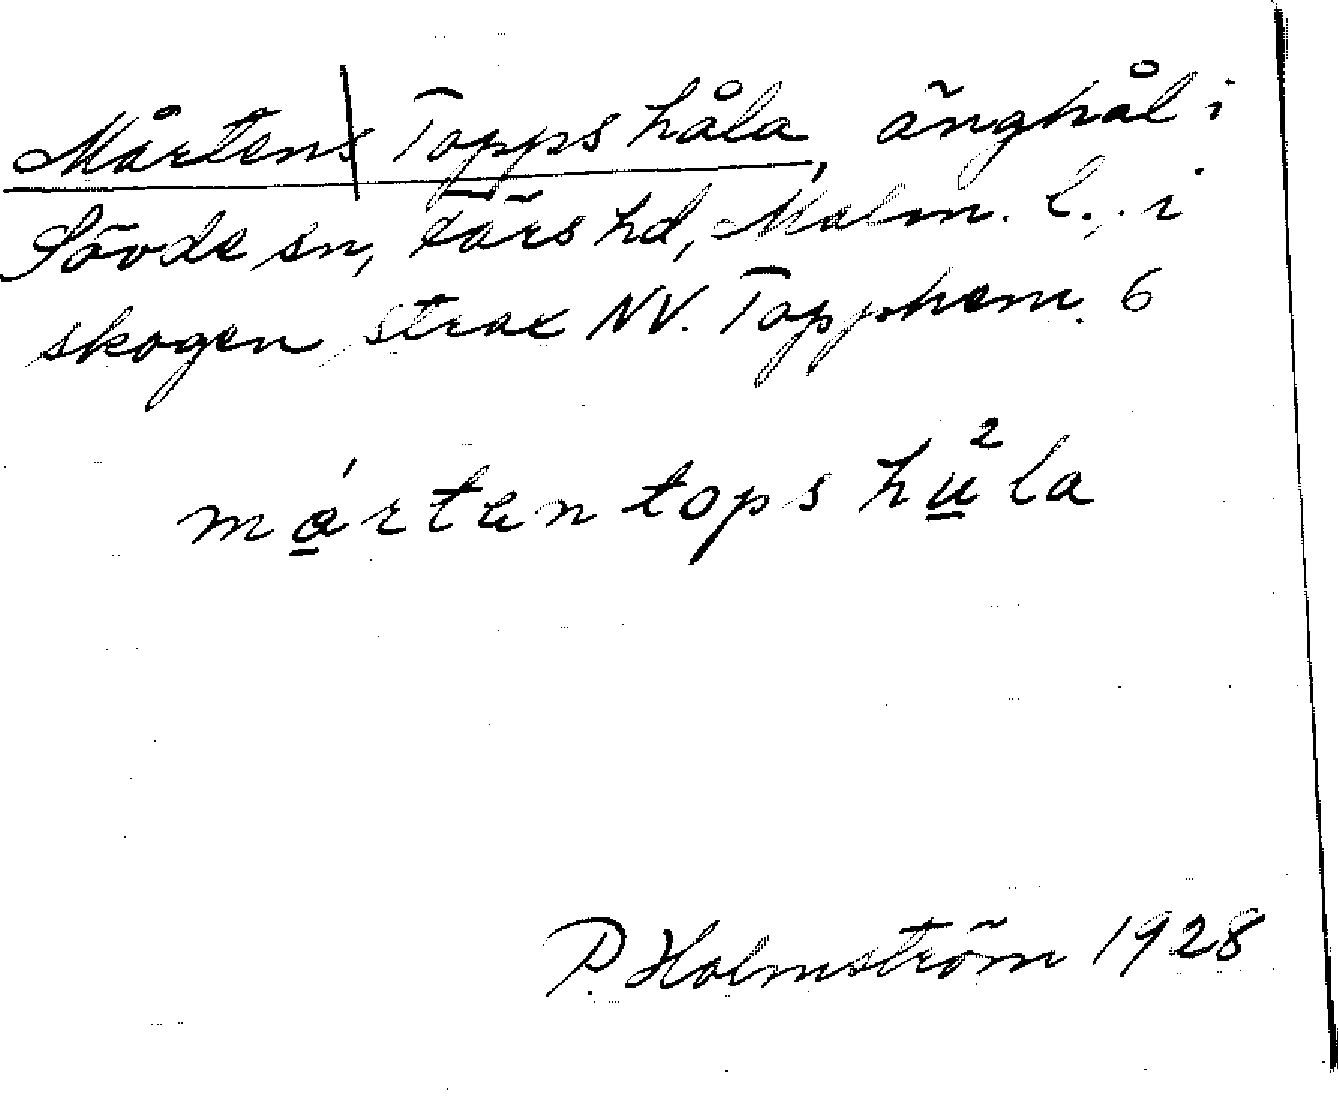 Mårtens Topps håla, änghål i
Sövde sn, Färs hd, Malm. l., i
skogen strax NV. Topphem. 6
mårten tops hu²la
P. Holmström 1928